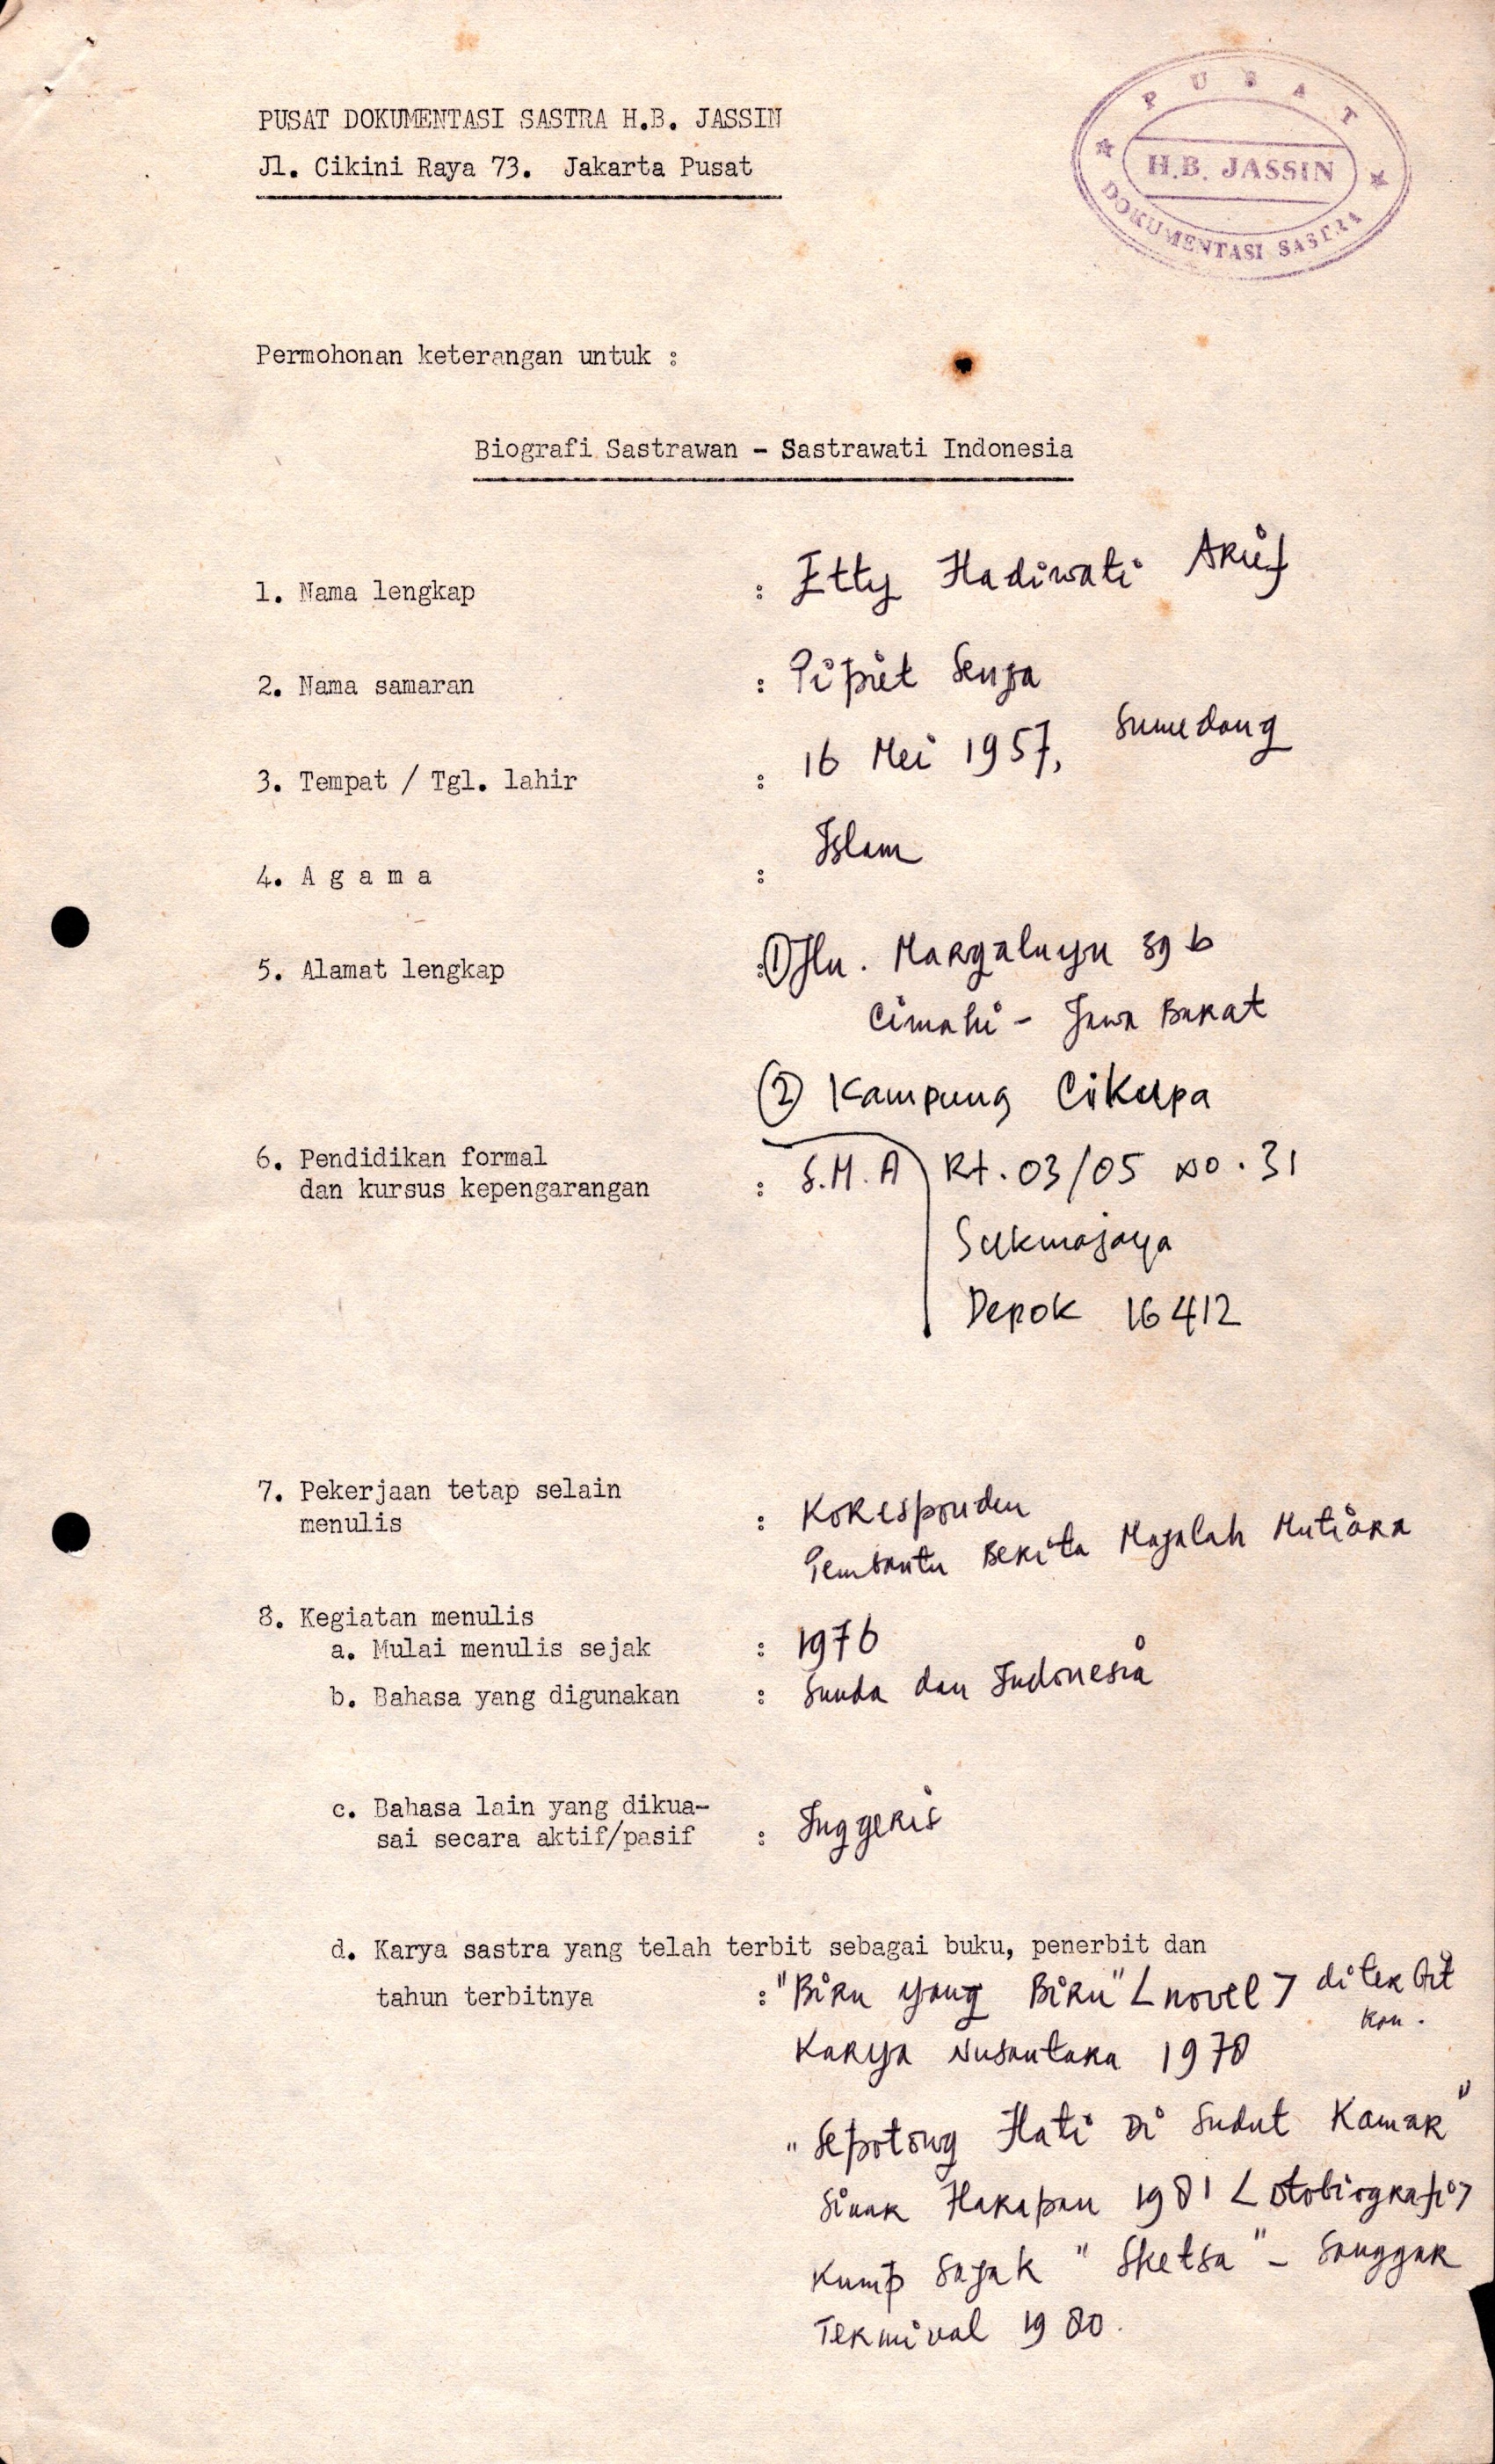 PUSAT DOKUMENTASI SASTRA H.B. JASSIN
Jl. Cikini Raya 73. Jakarta Pusat
PUSAT
H.B. JASSIN
DOKUMENTASI SASTRA
Permohonan keterangan untuk :
Biografi Sastrawan - Sastrawati Indonesia
1. Nama lengkap : Etty Hadiwati Arief
2. Nama samaran : Pipiet Senja
3. Tempat / Tgl. lahir : 16 Mei 1957, Sumedang
4. A g a m a : Islam
5. Alamat lengkap : ① Jln. Margaluyu 39 b
Cimahi - Jawa Barat
② Kampung Cikupa
Rt. 03/05 No. 31
Sukmajaya
Depok 16412
6. Pendidikan formal
dan kursus kepengarangan : S.M.A
7. Pekerjaan tetap selain
menulis : Koresponden
Pembantu Berita Majalah Mutiara
8. Kegiatan menulis
a. Mulai menulis sejak : 1976
b. Bahasa yang digunakan : Sunda dan Indonesia
c. Bahasa lain yang dikua-
sai secara aktif/pasif : Inggeris
d. Karya sastra yang telah terbit sebagai buku, penerbit dan
tahun terbitnya : "Biru yang Biru" < novel > diterbit
kan.
Karya Nusantara 1978
"Sepotong Hati Di Sudut Kamar"
Sinar Harapan 1981 < otobiografi >
Kump Sajak "Sketsa" - Sanggar
Terminal 1980.